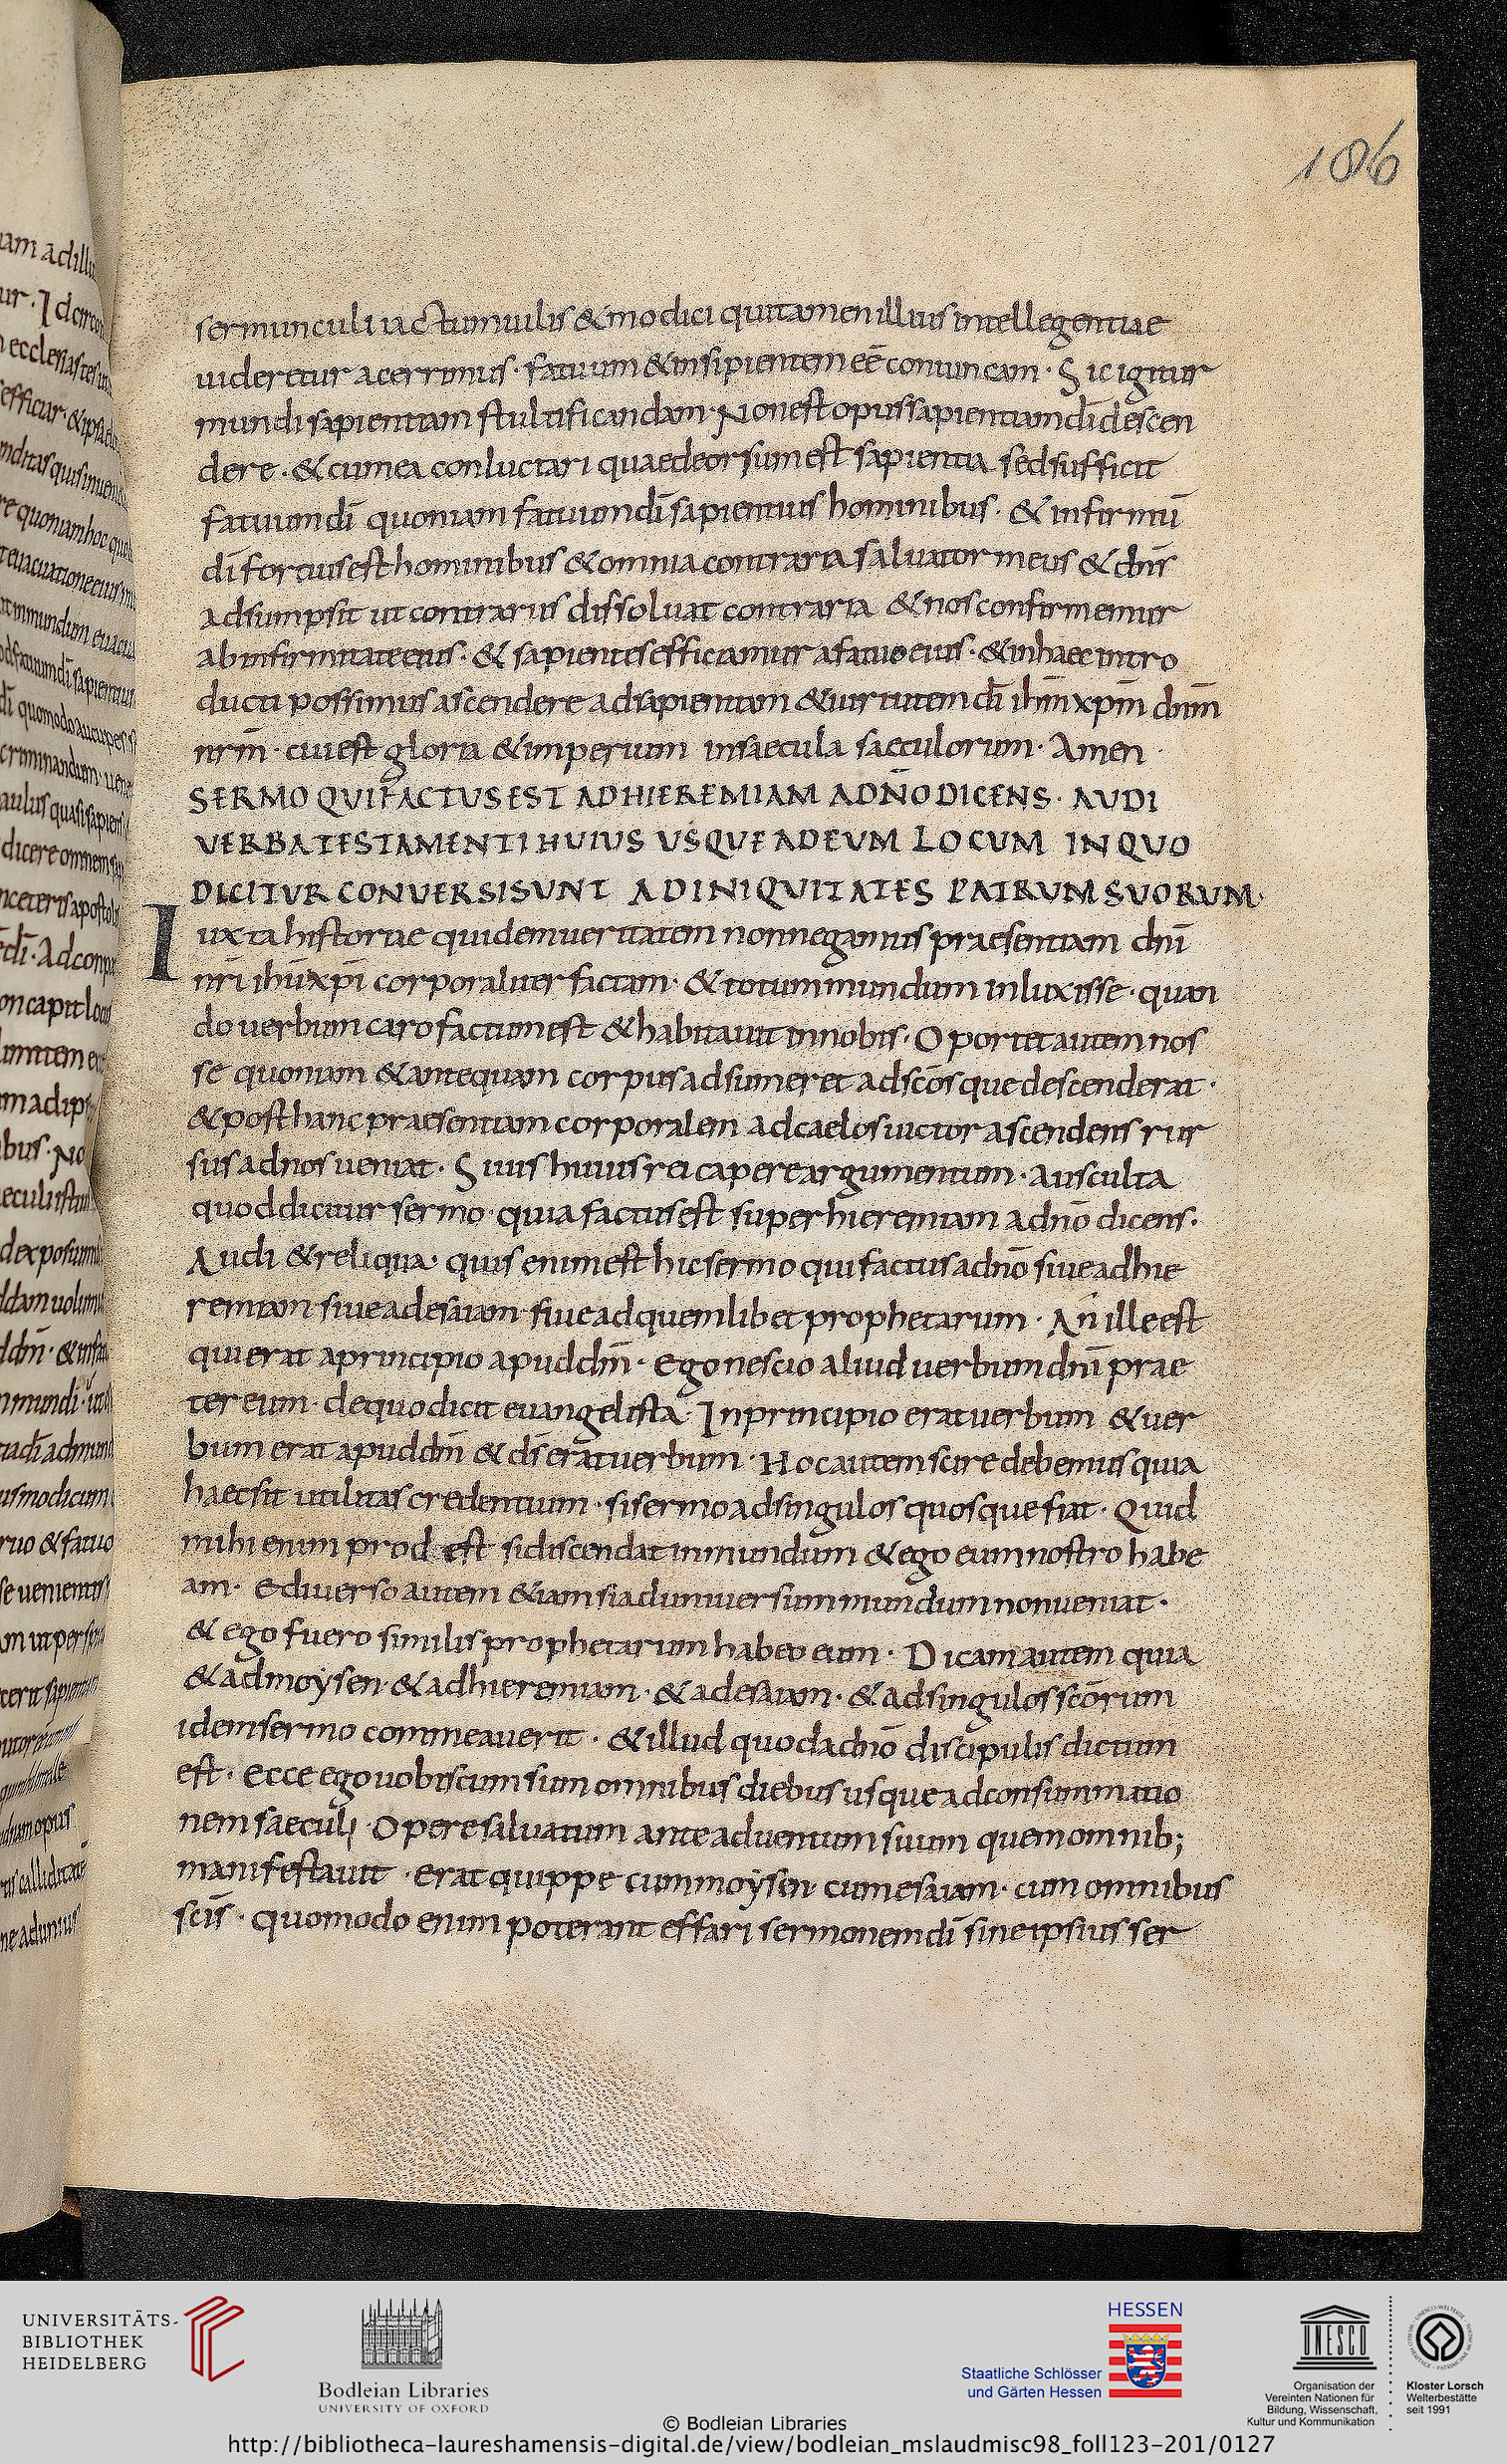 186
sermunculi iactu inuilis & modici qui tamen illius intellegentiae
uideretur acerrimus · fatuum & insipientem eē conuincam · Sic igitur
mundi sapientiam stultificandam · Non est opus sapientiam dī descen
dere · & cum ea conluctari quae deorsum est sapientia sed sufficit
fatuum dī quoniam fatuum dī sapientius hominibus · & infirmū
dī fortius est hominibus & omnia contraria saluator meus & dn̄s
adsumpsit ut contrariis dissoluat contraria & nos confirmemur
ab infirmitate eius · & sapientes efficiamur a fatuo eius · & in haec intro
ducti possimus ascendere ad sapientiam & uirtutem dī ih̄m xp̄m dn̄m
nr̄m · cui est gloria & imperium in saecula saeculorum · Amen ·
SERMO QUI FACTUS EST AD HIEREMIAM A DN̄O DICENS · AUDI
VERBA TESTAMENTI HUIUS USQUE AD EUM LOCUM IN QUO
DICITUR CONVERSI SUNT AD INIQUITATES PATRUM SUORUM·
Iuxta historiae quidem ueritatem non negamus praesentiam dn̄i
nr̄i ih̄u xp̄i corporaliter factam · & totum mundum inluxisse · quan
do uerbum caro factum est & habitauit in nobis · Oportet autem nos
se quoniam & antequam corpus adsumeret ad sc̄os que descenderat ·
& post hanc praesentiam corporalem ad caelos uictor ascendens rur
sus ad nos ueniat · Si uis huius rei capere argumentum · Ausculta
quod dicitur sermo · quia factus est super hieremiam a dn̄o dicens ·
Audi & reliqua · quis enim est hic sermo qui factus a dn̄o siue ad hie
remiam siue ad esaiam siue ad quemlibet prophetarum · An ille est
qui erat a principio apud dm̄ · ego nescio aliud uerbum dn̄i prae
ter eum · de quo dicit euangelista · In principio erat uerbum & uer
bum erat apud dm̄ & ds̄ erat uerbum · Hoc autem scire debemus quia
haec sit utilitas credentium · si sermo ad singulos quosque fiat · Quid
mihi enim prod est si discendat in mundum & ego eum nostro habe
am · e diuerso autem & iam si ad uniuersum mundum non ueniat ·
& ego fuero similis prophetarum habeo eum · Dicam autem quia
& ad moysen & ad hieremiam · & ad esaiam · & ad singulos sc̄orum
idem sermo commeauerit · & illud quod a dn̄o discipulis dictum
est · ecce ego uobiscum sum omnibus diebus usque ad consummatio
nem saeculi · Opere saluatum ante aduentum suum quem omnib;
manifestauit · erat quippe cum moysen cum esaiam · cum omnibus
sc̄is · quomodo enim poterant effari sermonem dī sine ipsius ser
UNIVERSITÄTS-
BIBLIOTHEK
HEIDELBERG
Bodleian Libraries
UNIVERSITY OF OXFORD
HESSEN
Staatliche Schlösser
und Gärten Hessen
UNESCO
Organisation der
Vereinten Nationen für
Bildung, Wissenschaft,
Kultur und Kommunikation
Kloster Lorsch
Welterbestätte
seit 1991
© Bodleian Libraries
http://bibliotheca-laureshamensis-digital.de/view/bodleian_mslaudmisc98_foll123-201/0127